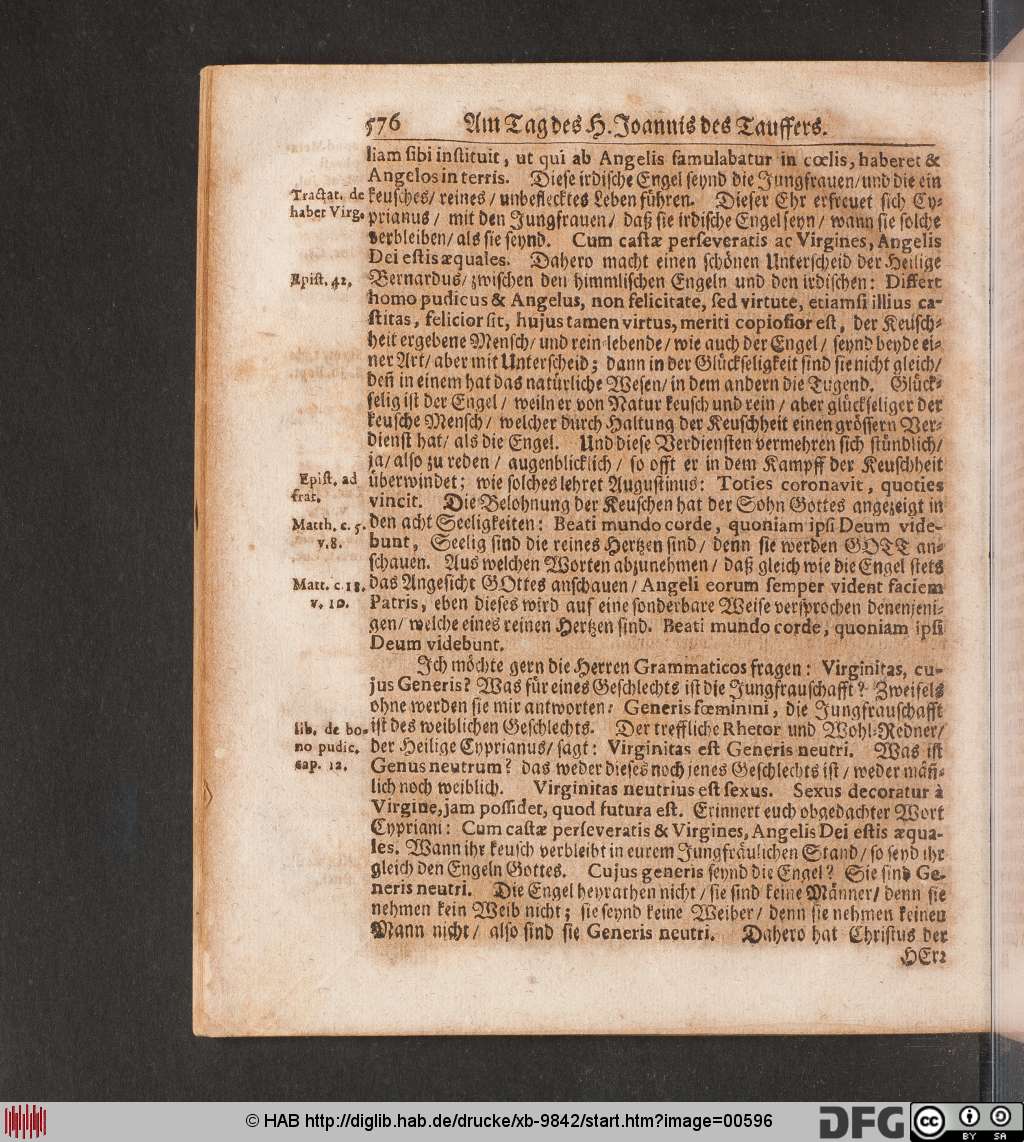 576 Am Tag des H. Joannis des Tauffers.
liam sibi instituit, ut qui ab Angelis famulabatur in cœlis, haberet &
Angelos in terris. Diese irdische Engel seynd die Jungfrauen/ und die ein
Tractat. de
haber Virg.
keusches/ reines/ unbeflecktes Leben führen. Dieser Ehr erfreuet sich Cy-
prianus/ mit den Jungfrauen/ daß sie irdische Engel seyn/ wann sie solche
verbleiben/ als sie seynd. Cum castæ perseveratis ac Virgines, Angelis
Dei estis æquales. Dahero macht einen schönen Unterscheid der Heilige
Epist. 42.
Bernardus/ zwischen den himmlischen Engeln und den irdischen: Differt
homo pudicus & Angelus, non felicitate, sed virtute, etiamsi illius ca-
stitas, felicior sit, hujus tamen virtus, meriti copiosior est, der Keusch-
heit ergebene Mensch/ und rein lebende/ wie auch der Engel/ seynd beyde ei-
ner Art/ aber mit Unterscheid; dann in der Glückseligkeit sind sie nicht gleich/
deñ in einem hat das natürliche Wesen/ in dem andern die Tugend. Glück-
selig ist der Engel/ weiln er von Natur keusch und rein/ aber glückseliger der
keusche Mensch/ welcher durch Haltung der Keuschheit einen grössern Ver-
dienst hat/ als die Engel. Und diese Verdiensten vermehren sich stündlich/
ja/ also zu reden/ augenblicklich/ so offt er in dem Kampff der Keuschheit
Epist. ad
frat.
überwindet; wie solches lehret Augustinus: Toties coronavit, quoties
vincit. Die Belohnung der Keuschen hat der Sohn Gottes angezeigt in
Matth. c. 5.
v. 8.
den acht Seeligkeiten: Beati mundo corde, quoniam ipsi Deum vide-
bunt, Seelig sind die reines Hertzen sind/ denn sie werden GOTT an-
schauen. Aus welchen Worten abzunehmen/ daß gleich wie die Engel stets
Matt. c 18.
v. 10.
das Angesicht GOttes anschauen/ Angeli eorum semper vident faciem
Patris, eben dieses wird auf eine sonderbare Weise versprochen denenjeni-
gen/ welche eines reinen Hertzen sind. Beati mundo corde, quoniam ipsi
Deum videbunt.
Ich möchte gern die Herren Grammaticos fragen: Virginitas, cu-
jus Generis? Was für eines Geschlechts ist die Jungfrauschafft? Zweifels
ohne werden sie mir antworten: Generis fœminini, die Jungfrauschafft
lib. de bo-
no pudic.
cap. 12.
ist des weiblichen Geschlechts. Der treffliche Rhetor und Wohl-Redner/
der Heilige Cyprianus/ sagt: Virginitas est Generis neutri. Was ist
Genus neutrum? das weder dieses noch jenes Geschlechts ist/ weder mäñ-
lich noch weiblich. Virginitas neutrius est sexus. Sexus decoratur à
Virgine, jam possidet, quod futura est. Erinnert euch obgedachter Wort
Cypriani: Cum castæ perseveratis & Virgines, Angelis Dei estis æqua-
les. Wann ihr keusch verbleibt in eurem Jungfräulichen Stand/ so seyd ihr
gleich den Engeln Gottes. Cujus generis seynd die Engel? Sie sind Ge-
neris neutri. Die Engel heyrathen nicht/ sie sind keine Männer/ denn sie
nehmen kein Weib nicht; sie seynd keine Weiber/ denn sie nehmen keinen
Mann nicht/ also sind sie Generis neutri. Dahero hat Christus der
HErr
© HAB http://diglib.hab.de/drucke/xb-9842/start.htm?image=00596
DFG
cc
BY SA